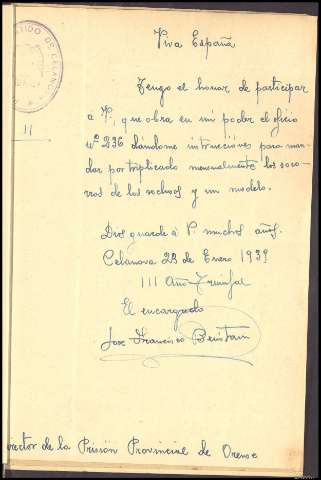 Viva España
PARTIDO DE CELANOVA
11
Tengo el honor de participar
á V. que obra en mi poder el oficio
nº 236 dándome intrucciónes para man-
dar por triplicado mensualmente los soco-
rros de los reclusos y un modelo.
Dios guarde á V. muchos años.
Celanova 23 de Enero 1939
III Año Triunfal
El encargado
Jose Francisco
rector de la Prisión Provincial de Orense